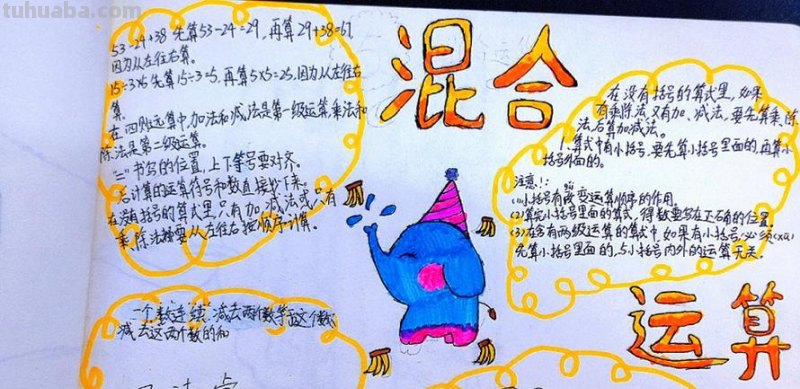 tuhuaba.com
混合
53-24+38 先算53-24=29,再算29+38=67
因为从左往右算。
15÷3×5 先算15÷3=5,再算5×5=25,因为从左往右
算。
在四则运算中加法和减法是第一级运算,乘法和
除法是第二级运算。
"="书写的位置,上下等号要对齐。
后计算的运算符号和数直接抄下来。
在没有括号的算式里,只有加减法或只有
乘除法都要从左往右按顺序计算。
在没有括号的算式里,如果
有乘除法,又有加、减法,要先算乘、除
法后算加减法。
1、算式中有小括号,要先算小括号里面的,再算小
括号外面的。
注意!:
(1)小括号有改变运算顺序的作用。
(2)算完小括号里面的算式,得数要写在正下方的位置
(3)在含有两级运算的算式中,如果有小括号,必须
先算小括号里面的,与小括号内外的运算无关。
一个数连续减去两个数等于这个数
减去这两个数的和
运算